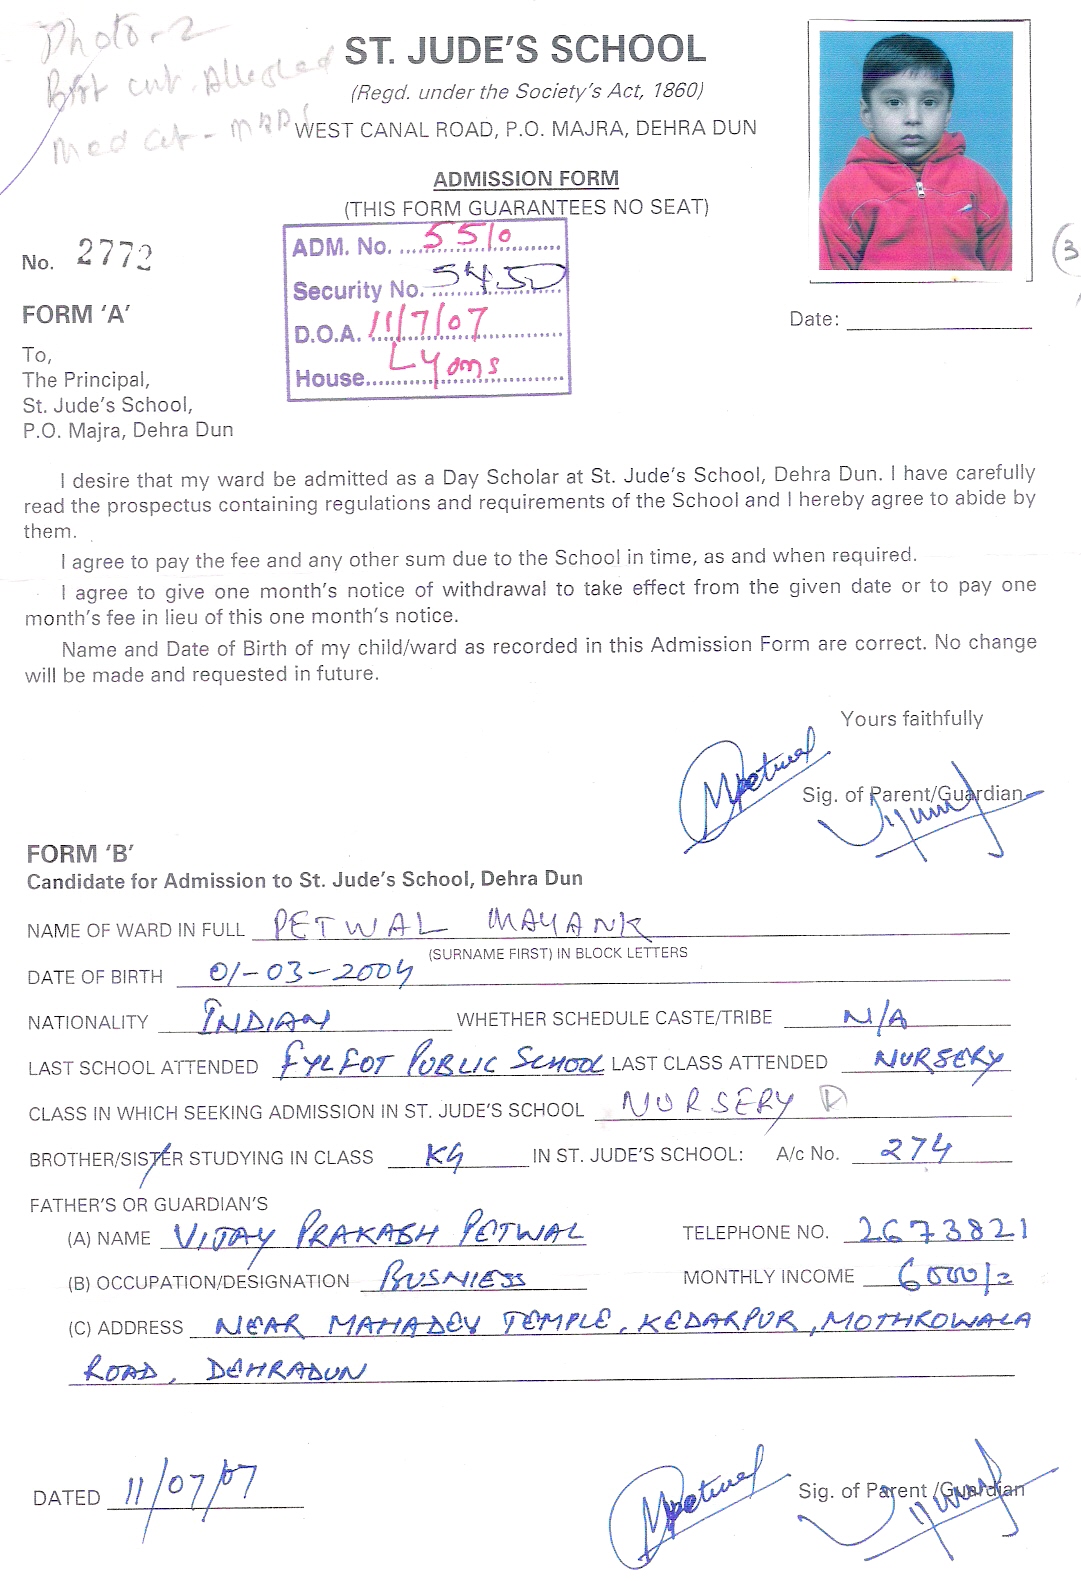 Photo - 2
ST. JUDE'S SCHOOL
(Regd. under the Society's Act, 1860)
WEST CANAL ROAD, P.O. MAJRA, DEHRA DUN
ADMISSION FORM
(THIS FORM GUARANTEES NO SEAT)
No. 2772
ADM. No. 5510
Security No. 5450
D.O.A. 11/7/07
House Lyons
3
FORM 'A'
Date:
To,
The Principal,
St. Jude's School,
P.O. Majra, Dehra Dun
I desire that my ward be admitted as a Day Scholar at St. Jude's School, Dehra Dun. I have carefully
read the prospectus containing regulations and requirements of the School and I hereby agree to abide by
them.
I agree to pay the fee and any other sum due to the School in time, as and when required.
I agree to give one month's notice of withdrawal to take effect from the given date or to pay one
month's fee in lieu of this one month's notice.
Name and Date of Birth of my child/ward as recorded in this Admission Form are correct. No change
will be made and requested in future.
Yours faithfully
Mpetwal
Sig. of Parent/Guardian
FORM 'B'
Candidate for Admission to St. Jude's School, Dehra Dun
NAME OF WARD IN FULL PETWAL MAYANK
(SURNAME FIRST) IN BLOCK LETTERS
DATE OF BIRTH 01-03-2004
NATIONALITY INDIAN WHETHER SCHEDULE CASTE/TRIBE N/A
LAST SCHOOL ATTENDED FYLFOT PUBLIC SCHOOL LAST CLASS ATTENDED NURSERY
CLASS IN WHICH SEEKING ADMISSION IN ST. JUDE'S SCHOOL NURSERY
BROTHER/SISTER STUDYING IN CLASS KG IN ST. JUDE'S SCHOOL: A/c No. 274
FATHER'S OR GUARDIAN'S
(A) NAME VIJAY PRAKASH PETWAL TELEPHONE NO. 2673821
(B) OCCUPATION/DESIGNATION BUSNIESS MONTHLY INCOME 6000/=
(C) ADDRESS NEAR MAHADEV TEMPLE, KEDARPUR, MOTHROWALA
ROAD, DEHRADUN
DATED 11/07/07
Mpetwal
Sig. of Parent /Guardian